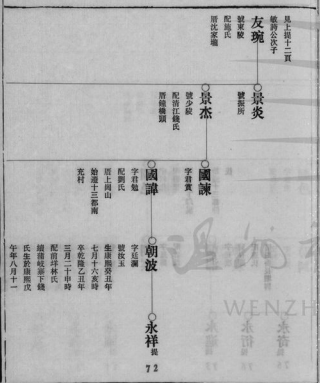 見上提十二頁
敏濟公次子
友琬
號東陵
配施氏
厝沈家壠
景炎
號振所
景杰
號少陵
配清江錢氏
厝鐘橋頭
國諫
字君實
國諱
字君勉
配劉氏
厝上岡山
始遷十三都南
充村
朝波
字廷瀾
號汝玉
生康熙癸丑年
七月十六亥時
卒乾隆乙丑年
三月二十甲時
配前垟林氏
續蒲岐下錢
氏生於康熙戊
午年八月十一
永祥提
72
WENZH